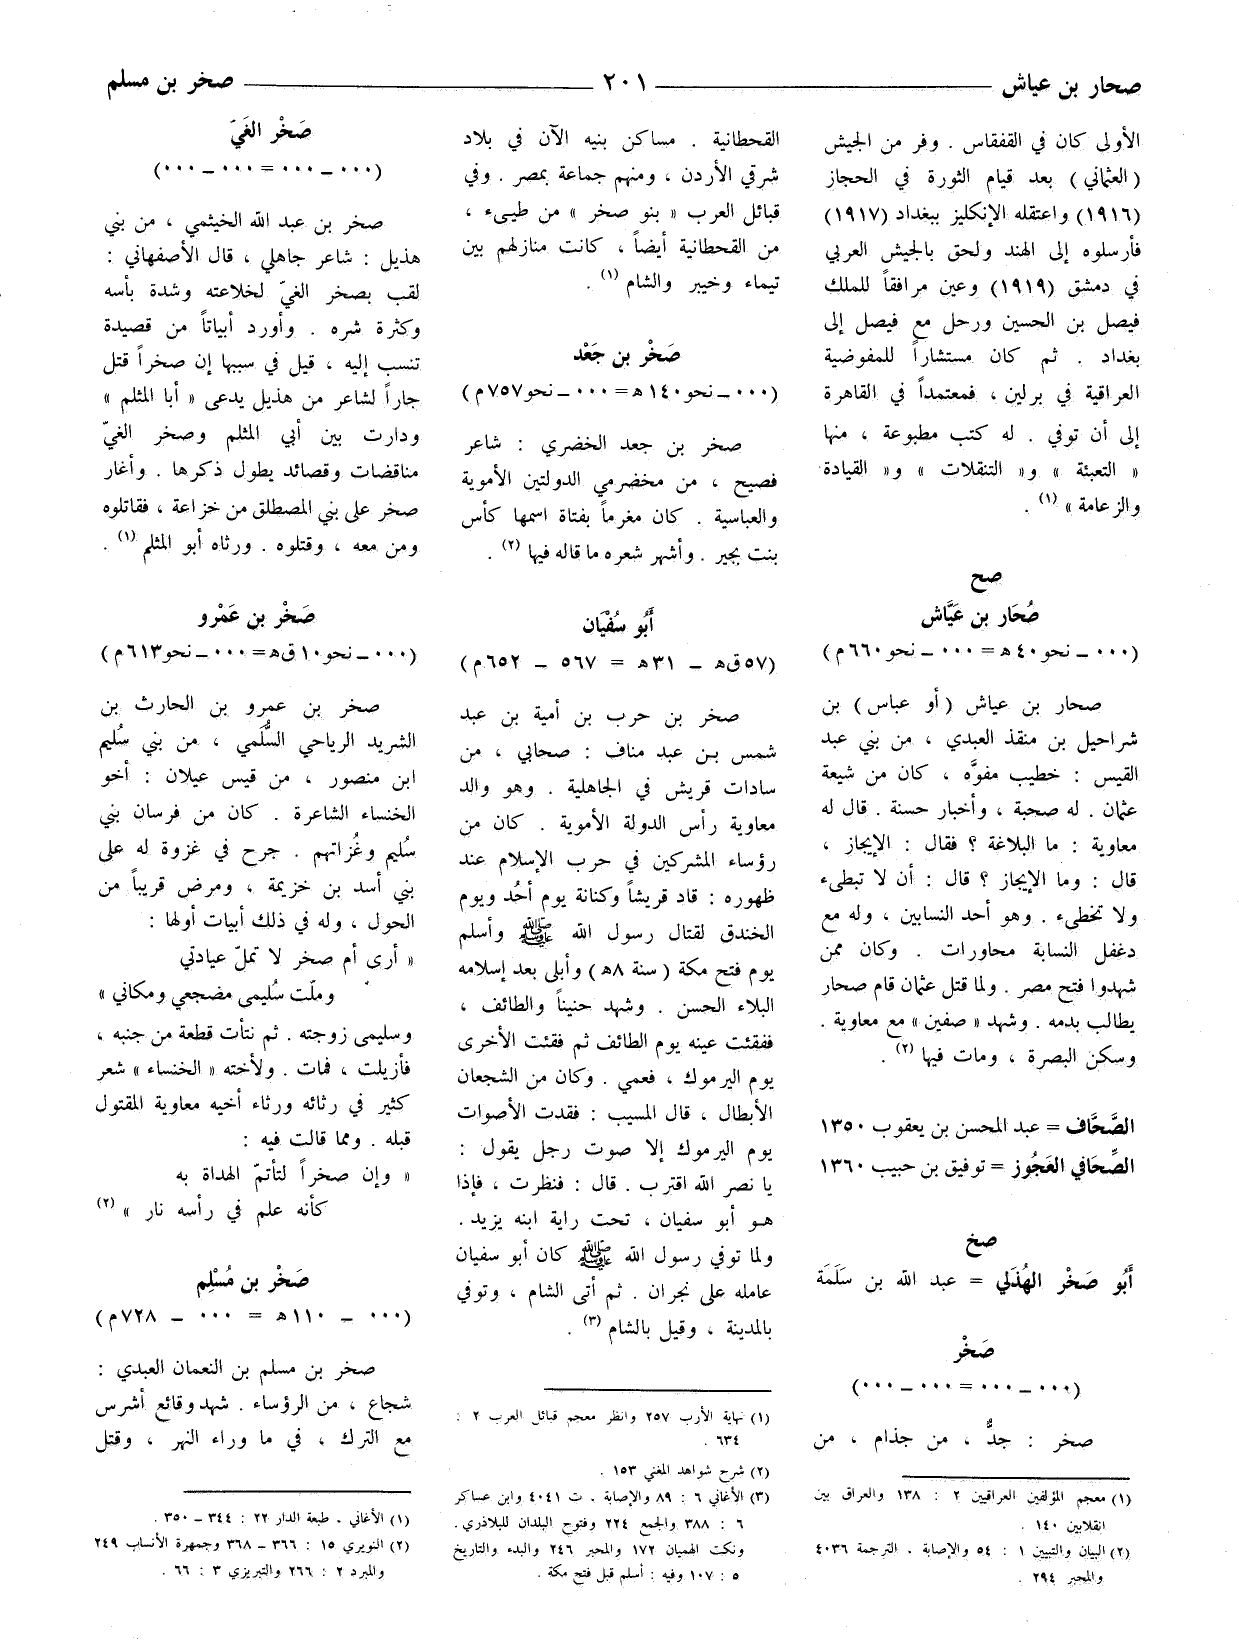 صحار بن عياش ٢٠١ صخر بن مسلم
الأولى كان في القفقاس . وفر من الجيش
(العثماني) بعد قيام الثورة في الحجاز
(١٩١٦) واعتقله الإنكليز ببغداد (١٩١٧)
فأرسلوه إلى الهند ولحق بالجيش العربي
في دمشق (١٩١٩) وعين مرافقاً للملك
فيصل بن الحسين ورحل مع فيصل إلى
بغداد . ثم كان مستشاراً للمفوضية
العراقية في برلين ، فمعتمداً في القاهرة
إلى أن توفي . له كتب مطبوعة ، منها
« التعبئة » و« التنقلات » و« القيادة
والزعامة » (١) .
صح
صُحَار بن عَيَّاش
(٠٠٠ ــ نحو ٤٠ هـ = ٠٠٠ ــ نحو ٦٦٠ م)
صحار بن عياش (أو عباس) بن
شراحيل بن منقذ العبدي ، من بني عبد
القيس : خطيب مفوَّه ، كان من شيعة
عثمان . له صحبة ، وأخبار حسنة . قال له
معاوية : ما البلاغة ؟ فقال : الإيجاز ،
قال : وما الإيجاز ؟ قال : أن لا تبطىء
ولا تخطىء . وهو أحد النسابين ، وله مع
دغفل النسابة محاورات . وكان ممن
شهدوا فتح مصر . ولما قتل عثمان قام صحار
يطالب بدمه . وشهد « صفين » مع معاوية .
وسكن البصرة ، ومات فيها (٢) .
الصَّحَّاف = عبد المحسن بن يعقوب ١٣٥٠
الصِّحَافي العَجُوز = توفيق بن حبيب ١٣٦٠
صخ
أَبُو صَخْر الهُذَلي = عبد الله بن سَلَمَة
صَخْر
(٠٠٠ ــ ٠٠٠ = ٠٠٠ ــ ٠٠٠)
صخر : جدٌّ ، من جذام ، من
(١) معجم المؤلفين العراقيين ٢ : ١٣٨ والعراق بين
انقلابين ١٤٠ .
(٢) البيان والتبيين ١ : ٥٤ والإصابة . الترجمة ٤٠٣٦
والمحبر ٢٩٤ .
القحطانية . مساكن بنيه الآن في بلاد
شرقي الأردن ، ومنهم جماعة بمصر . وفي
قبائل العرب « بنو صخر » من طيىء ،
من القحطانية أيضاً ، كانت منازلهم بين
تيماء وخيبر والشام (١) .
صَخْر بن جَعْد
(٠٠٠ ــ نحو ١٤٠ هـ = ٠٠٠ ــ نحو ٧٥٧ م)
صخر بن جعد الخضري : شاعر
فصيح ، من مخضرمي الدولتين الأموية
والعباسية . كان مغرماً بفتاة اسمها كأس
بنت بجير . وأشهر شعره ما قاله فيها (٢) .
أَبُو سُفْيَان
(٥٧ ق هـ ــ ٣١ هـ = ٥٦٧ ــ ٦٥٢ م)
صخر بن حرب بن أمية بن عبد
شمس بن عبد مناف : صحابي ، من
سادات قريش في الجاهلية . وهو والد
معاوية رأس الدولة الأموية . كان من
رؤساء المشركين في حرب الإسلام عند
ظهوره : قاد قريشاً وكنانة يوم أحُد ويوم
الخندق لقتال رسول الله ﷺ وأسلم
يوم فتح مكة (سنة ٨ هـ) وأبلى بعد إسلامه
البلاء الحسن . وشهد حنيناً والطائف ،
ففقئت عينه يوم الطائف ثم فقئت الأخرى
يوم اليرموك ، فعمي . وكان من الشجعان
الأبطال ، قال المسيب : فقدت الأصوات
يوم اليرموك إلا صوت رجل يقول :
يا نصر الله اقترب . قال : فنظرت ، فإذا
هو أبو سفيان ، تحت راية ابنه يزيد .
ولما توفي رسول الله ﷺ كان أبو سفيان
عامله على نجران . ثم أتى الشام ، وتوفي
بالمدينة ، وقيل بالشام (٣) .
(١) نهاية الأرب ٢٥٧ وانظر معجم قبائل العرب ٢ :
٦٣٤ .
(٢) شرح شواهد المغني ١٥٣ .
(٣) الأغاني ٦ : ٨٩ والإصابة . ت ٤٠٤١ وابن عساكر
٦ : ٣٨٨ والجمع ٢٢٤ وفتوح البلدان للبلاذري .
ونكت الهميان ١٧٢ والمحبر ٢٤٦ والبدء والتاريخ
٥ : ١٠٧ وفيه : أسلم قبل فتح مكة .
صَخْر الغَيّ
(٠٠٠ ــ ٠٠٠ = ٠٠٠ ــ ٠٠٠)
صخر بن عبد الله الخيثمي ، من بني
هذيل : شاعر جاهلي ، قال الأصفهاني :
لقب بصخر الغيّ لخلاعته وشدة بأسه
وكثرة شره . وأورد أبياتاً من قصيدة
تنسب إليه ، قيل في سببها إن صخراً قتل
جاراً لشاعر من هذيل يدعى « أبا المثلم »
ودارت بين أبي المثلم وصخر الغيّ
مناقضات وقصائد يطول ذكرها . وأغار
صخر على بني المصطلق من خزاعة ، فقاتلوه
ومن معه ، وقتلوه . ورثاه أبو المثلم (١) .
صَخْر بن عَمْرو
(٠٠٠ ــ نحو ١٠ ق هـ = ٠٠٠ ــ نحو ٦١٣ م)
صخر بن عمرو بن الحارث بن
الشريد الرياحي السُّلَمي ، من بني سُليم
ابن منصور ، من قيس عيلان : أخو
الخنساء الشاعرة . كان من فرسان بني
سُليم وغُزاتهم . جرح في غزوة له على
بني أسد بن خزيمة ، ومرض قريباً من
الحول ، وله في ذلك أبيات أولها :
« أرى أم صخر لا تملّ عيادتي
وملّت سُليمى مضجعي ومكاني »
وسليمى زوجته . ثم نتأت قطعة من جنبه ،
فأزيلت ، فمات . ولأخته « الخنساء » شعر
كثير في رثائه ورثاء أخيه معاوية المقتول
قبله . ومما قالت فيه :
« وإن صخراً لتأتمّ الهداة به
كأنه علم في رأسه نار » (٢)
صَخْر بن مُسْلِم
(٠٠٠ ــ ١١٠ هـ = ٠٠٠ ــ ٧٢٨ م)
صخر بن مسلم بن النعمان العبدي :
شجاع ، من الرؤساء . شهد وقائع أشرس
مع الترك ، في ما وراء النهر ، وقتل
(١) الأغاني . طبعة الدار ٢٢ : ٣٤٤ ــ ٣٥٠ .
(٢) النويري ١٥ : ٣٦٦ ــ ٣٦٨ وجمهرة الأنساب ٢٤٩
والمبرد ٢ : ٢٦٦ والتبريزي ٣ : ٦٦ .